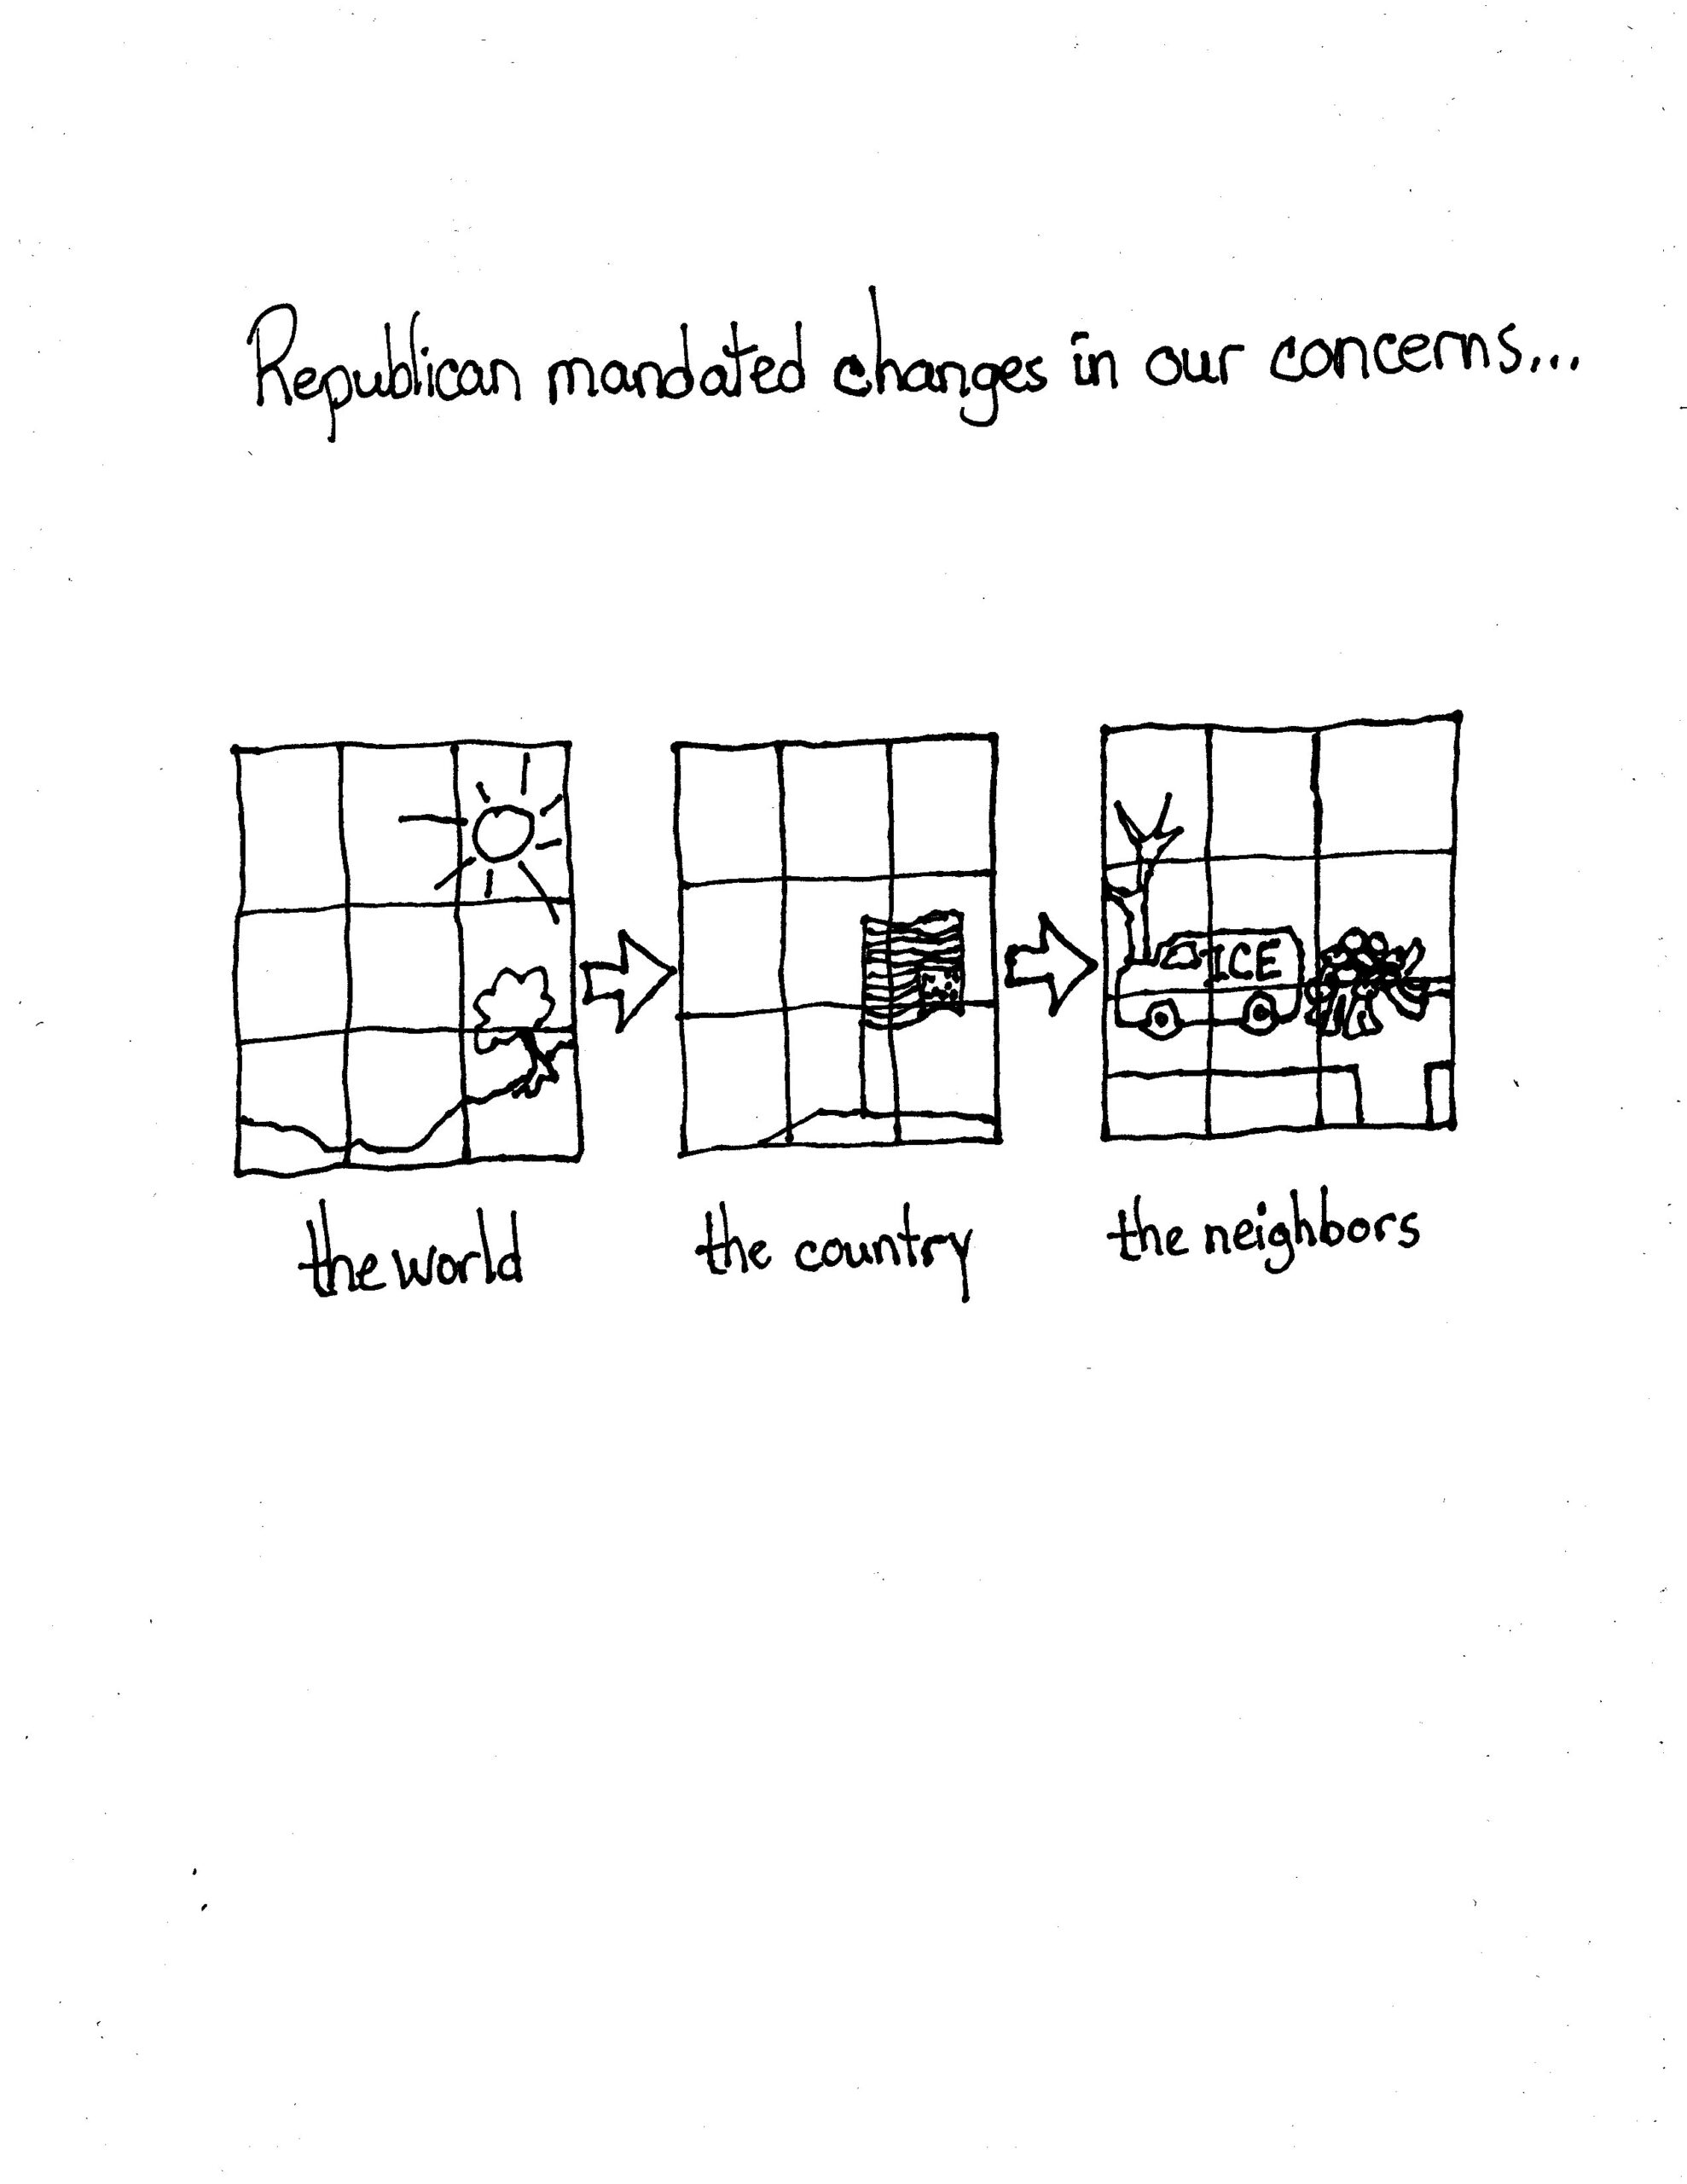 Republican mandated changes in our concerns...
ICE
the world
the country
the neighbors